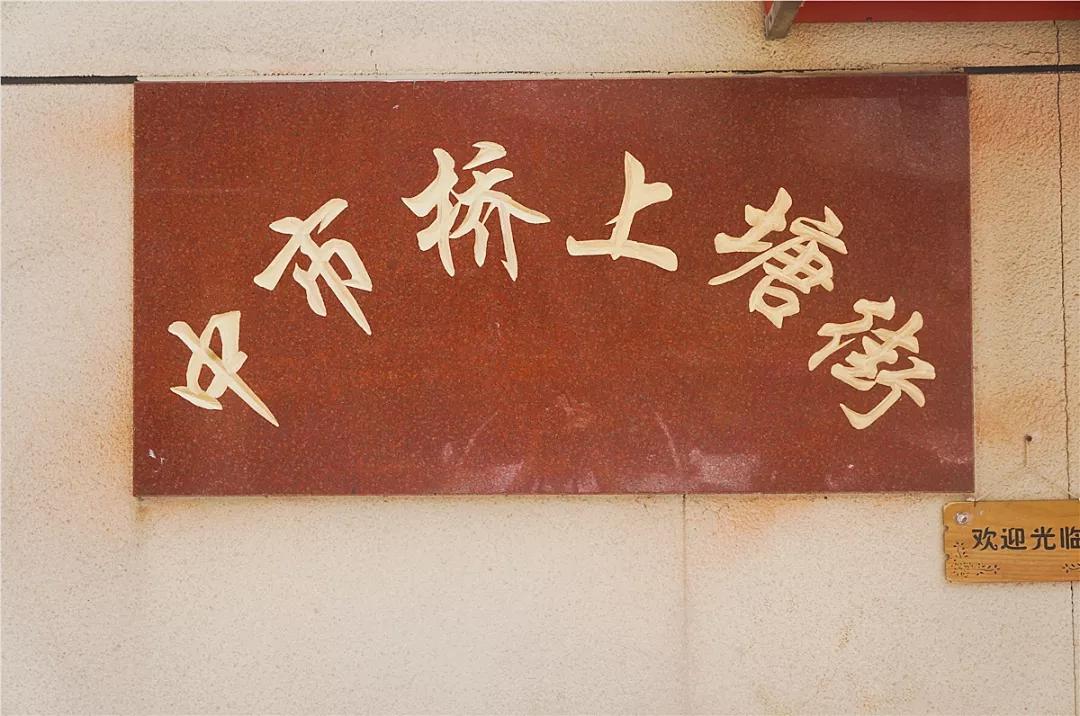 中市桥上塘街
欢迎光临